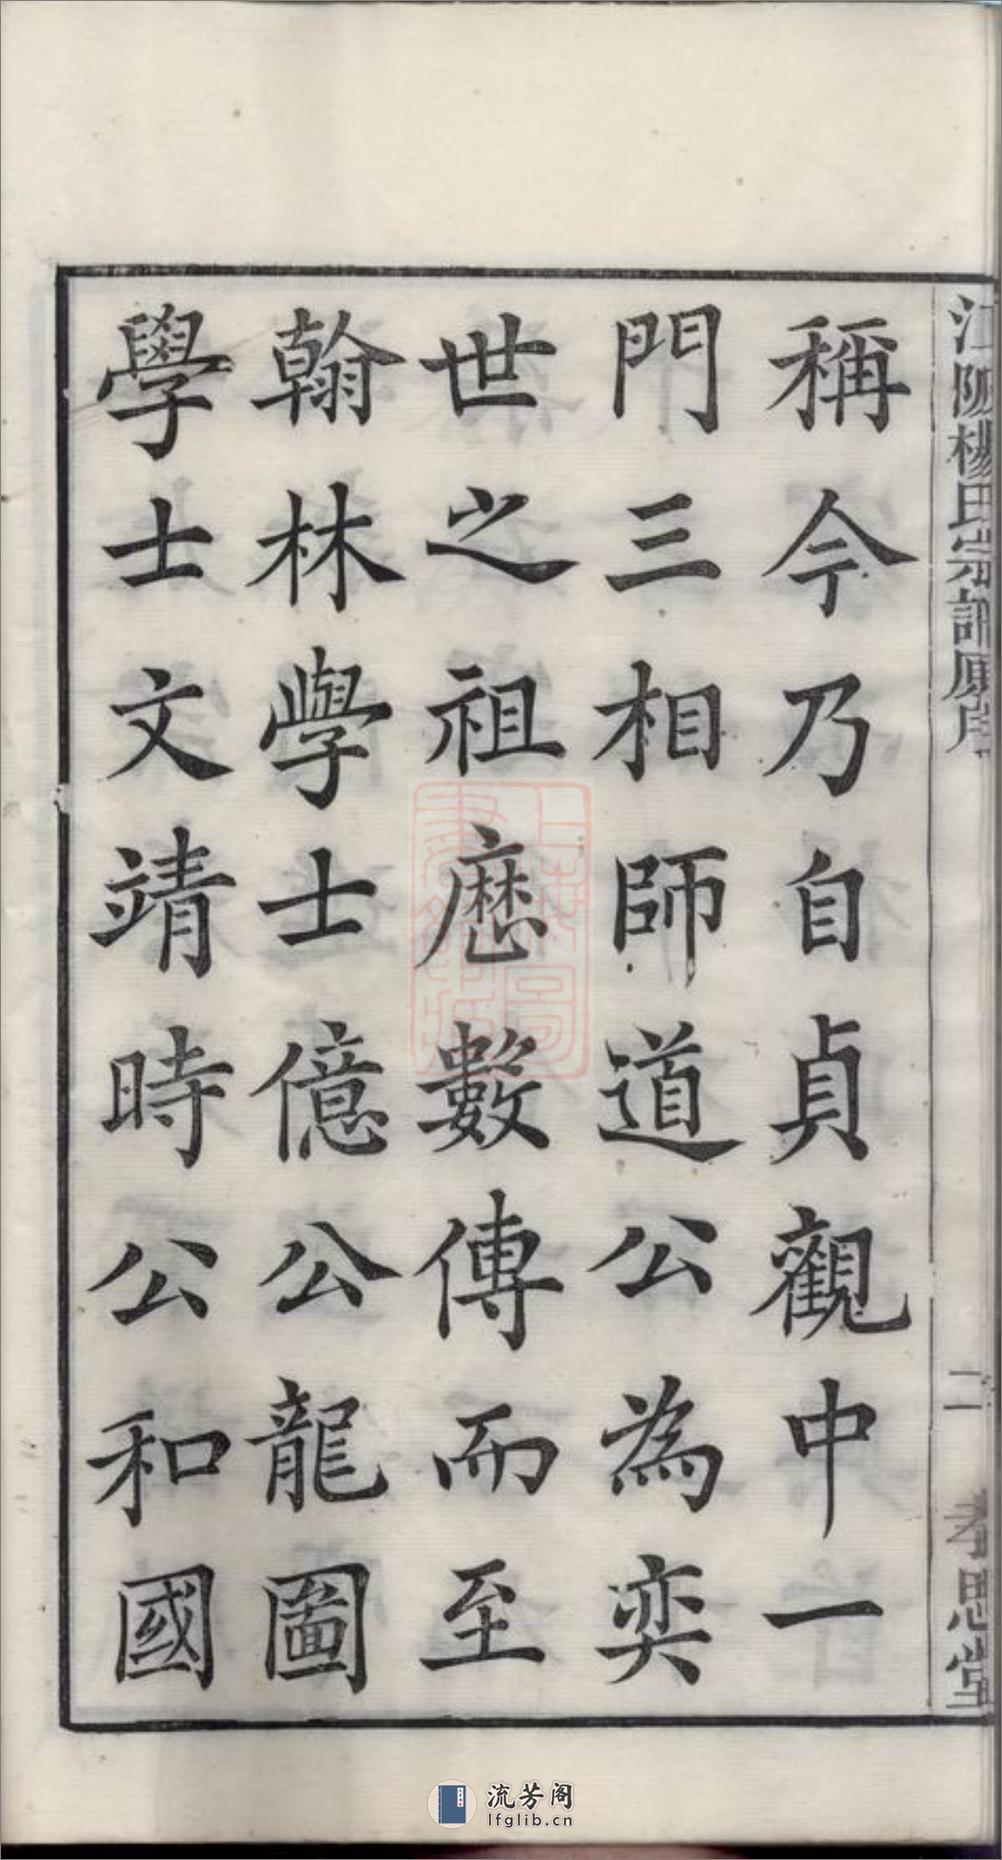 江陰楊氏宗譜原序
二
孝思堂
稱今乃自貞觀中一
門三相師道公為奕
世之祖厯數傳而至
翰林學士億公龍圖
學士文靖時公和國
流芳阁
lfglib.cn